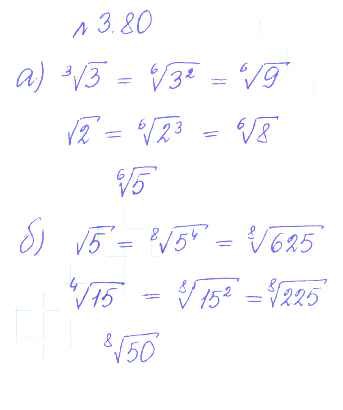 № 3.80
а) ³√3 = ⁶√3² = ⁶√9
√2 = ⁶√2³ = ⁶√8
⁶√5
б) √5 = ⁸√5⁴ = ⁸√625
⁴√15 = ⁸√15² = ⁸√225
⁸√50